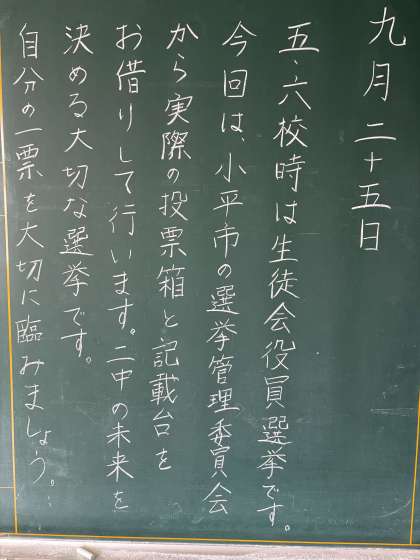 九月二十五日
五・六校時は生徒会役員選挙です。
今回は、小平市の選挙管理委員会
から実際の投票箱と記載台を
お借りして行います。二中の未来を
決める大切な選挙です。
自分の一票を大切に臨みましょう。